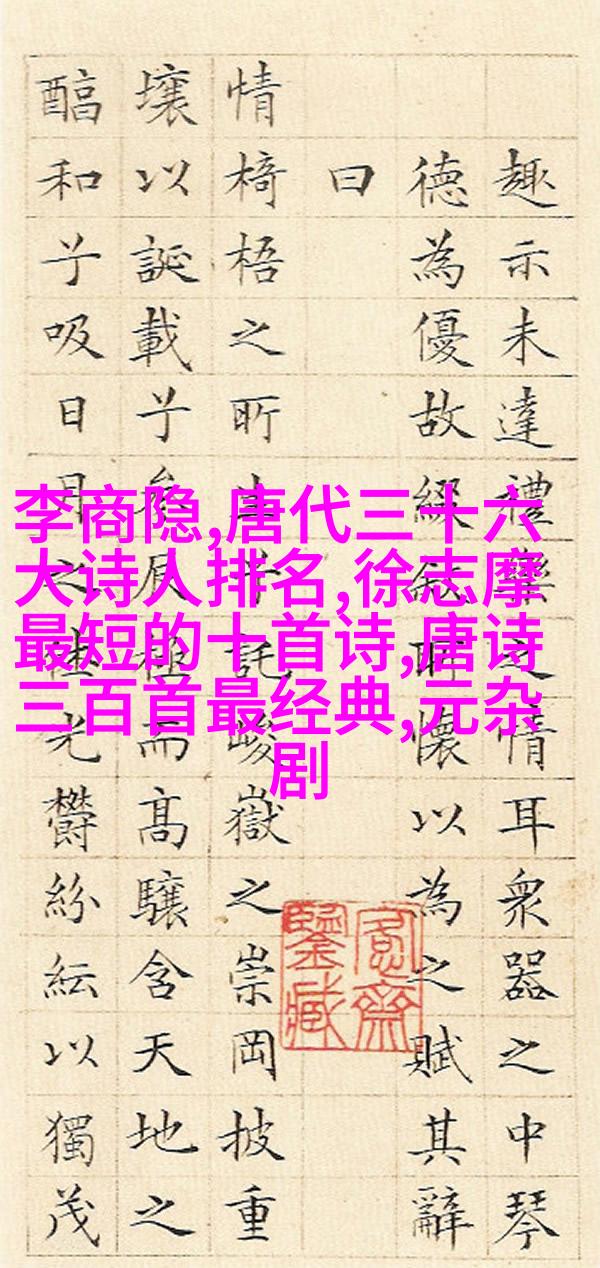 趣示未達禮樂之情耳衆器之中琴
德為優故綴敘所懷以為之賦其辭
曰
情椅梧之所生兮託峻嶽之崇岡披重
壤以誕載兮參辰極而高驤含天地之
醕和兮吸日月之休光鬱紛紜以獨茂
李商隐,唐代三十六
大诗人排名,徐志摩
最短的十首诗,唐诗
三百首最经典,元杂
剧